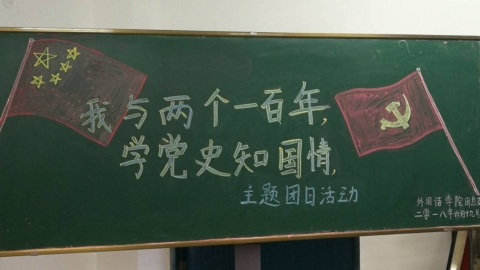 我与两个一百年,
学党史知国情.
主题团日活动
外国语学院
二零一八年